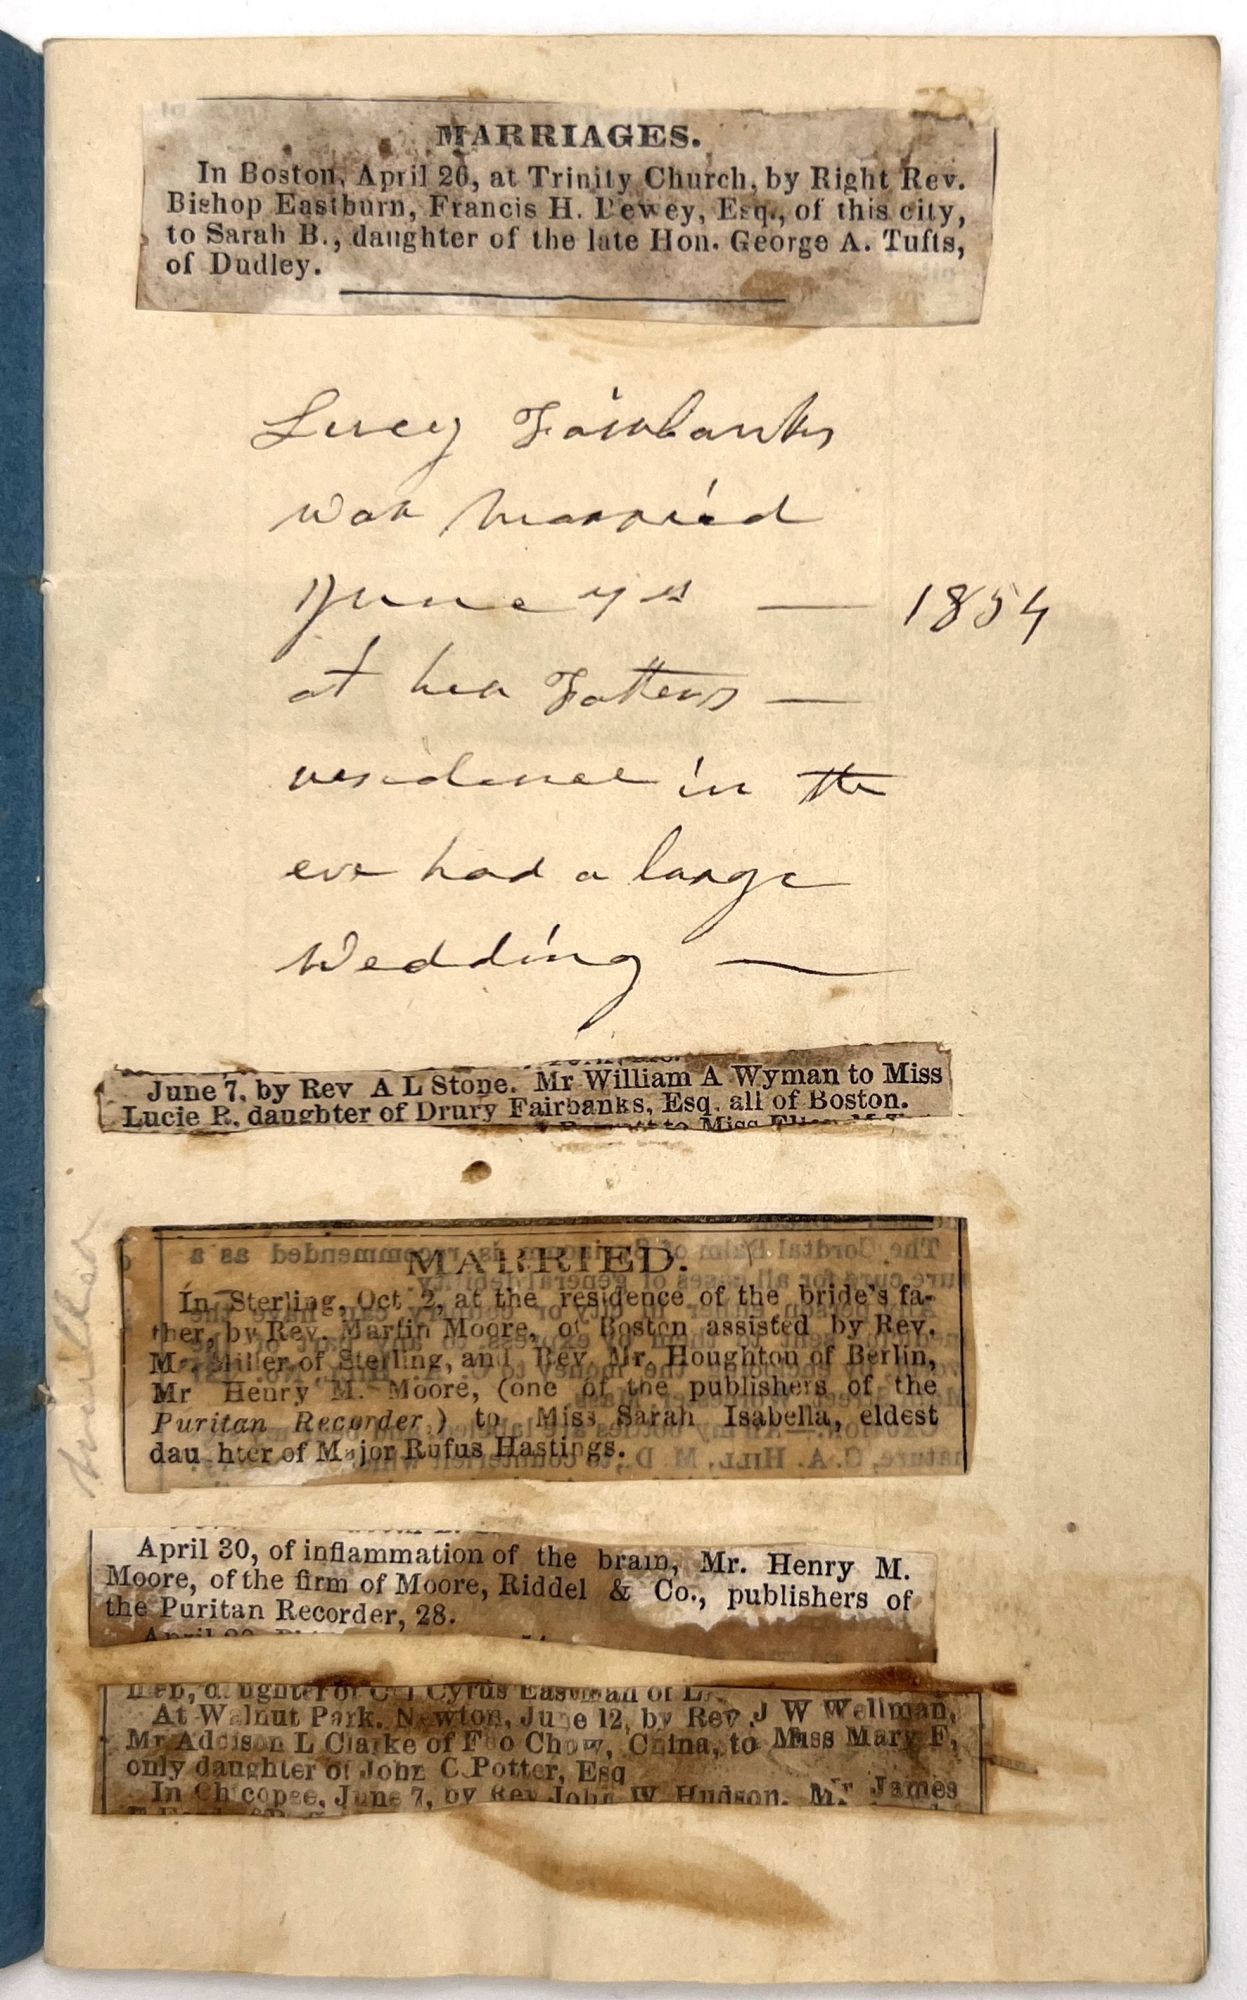 MARRIAGES.
In Boston, April 26, at Trinity Church, by Right Rev.
Bishop Eastburn, Francis H. Dewey, Esq., of this city,
to Sarah B., daughter of the late Hon. George A. Tufts,
of Dudley.
Lucy Fairbanks
was married
June 7th — 1854
at her Fathers —
residence in the
eve had a large
Wedding —
June 7, by Rev A L Stone. Mr William A Wyman to Miss
Lucie R, daughter of Drury Fairbanks, Esq. all of Boston.
to Miss
The Cordial Balm of recommended as a
sure cure for all cases of general debility
MARRIED.
In Sterling, Oct 2, at the residence of the bride's fa-
ther, by Rev. Martin Moore, of Boston assisted by Rev.
Mr. Miller of Sterling, and Rev. Mr. Houghton of Berlin,
Mr Henry M. Moore, (one of the publishers of the
Puritan Recorder,) to Miss Sarah Isabella, eldest
dau hter of Major Rufus Hastings.
nature, C. A. HILL, M. D.,
April 30, of inflammation of the brain, Mr. Henry M.
Moore, of the firm of Moore, Riddel & Co., publishers of
the Puritan Recorder, 28.
daughter of Cyrus Eastman of
At Walnut Park, Newton, June 12, by Rev J W Wellman,
Mr Addison L Clarke of Foo Chow, China, to Miss Mary F,
only daughter of John C Potter, Esq
In Chicopee, June 7, by Rev John W Hudson. Mr James